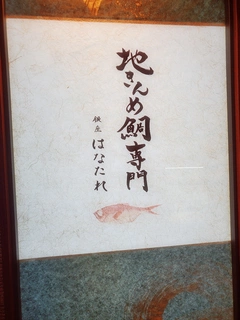 地きんめ鯛専門
銀座 はなたれ